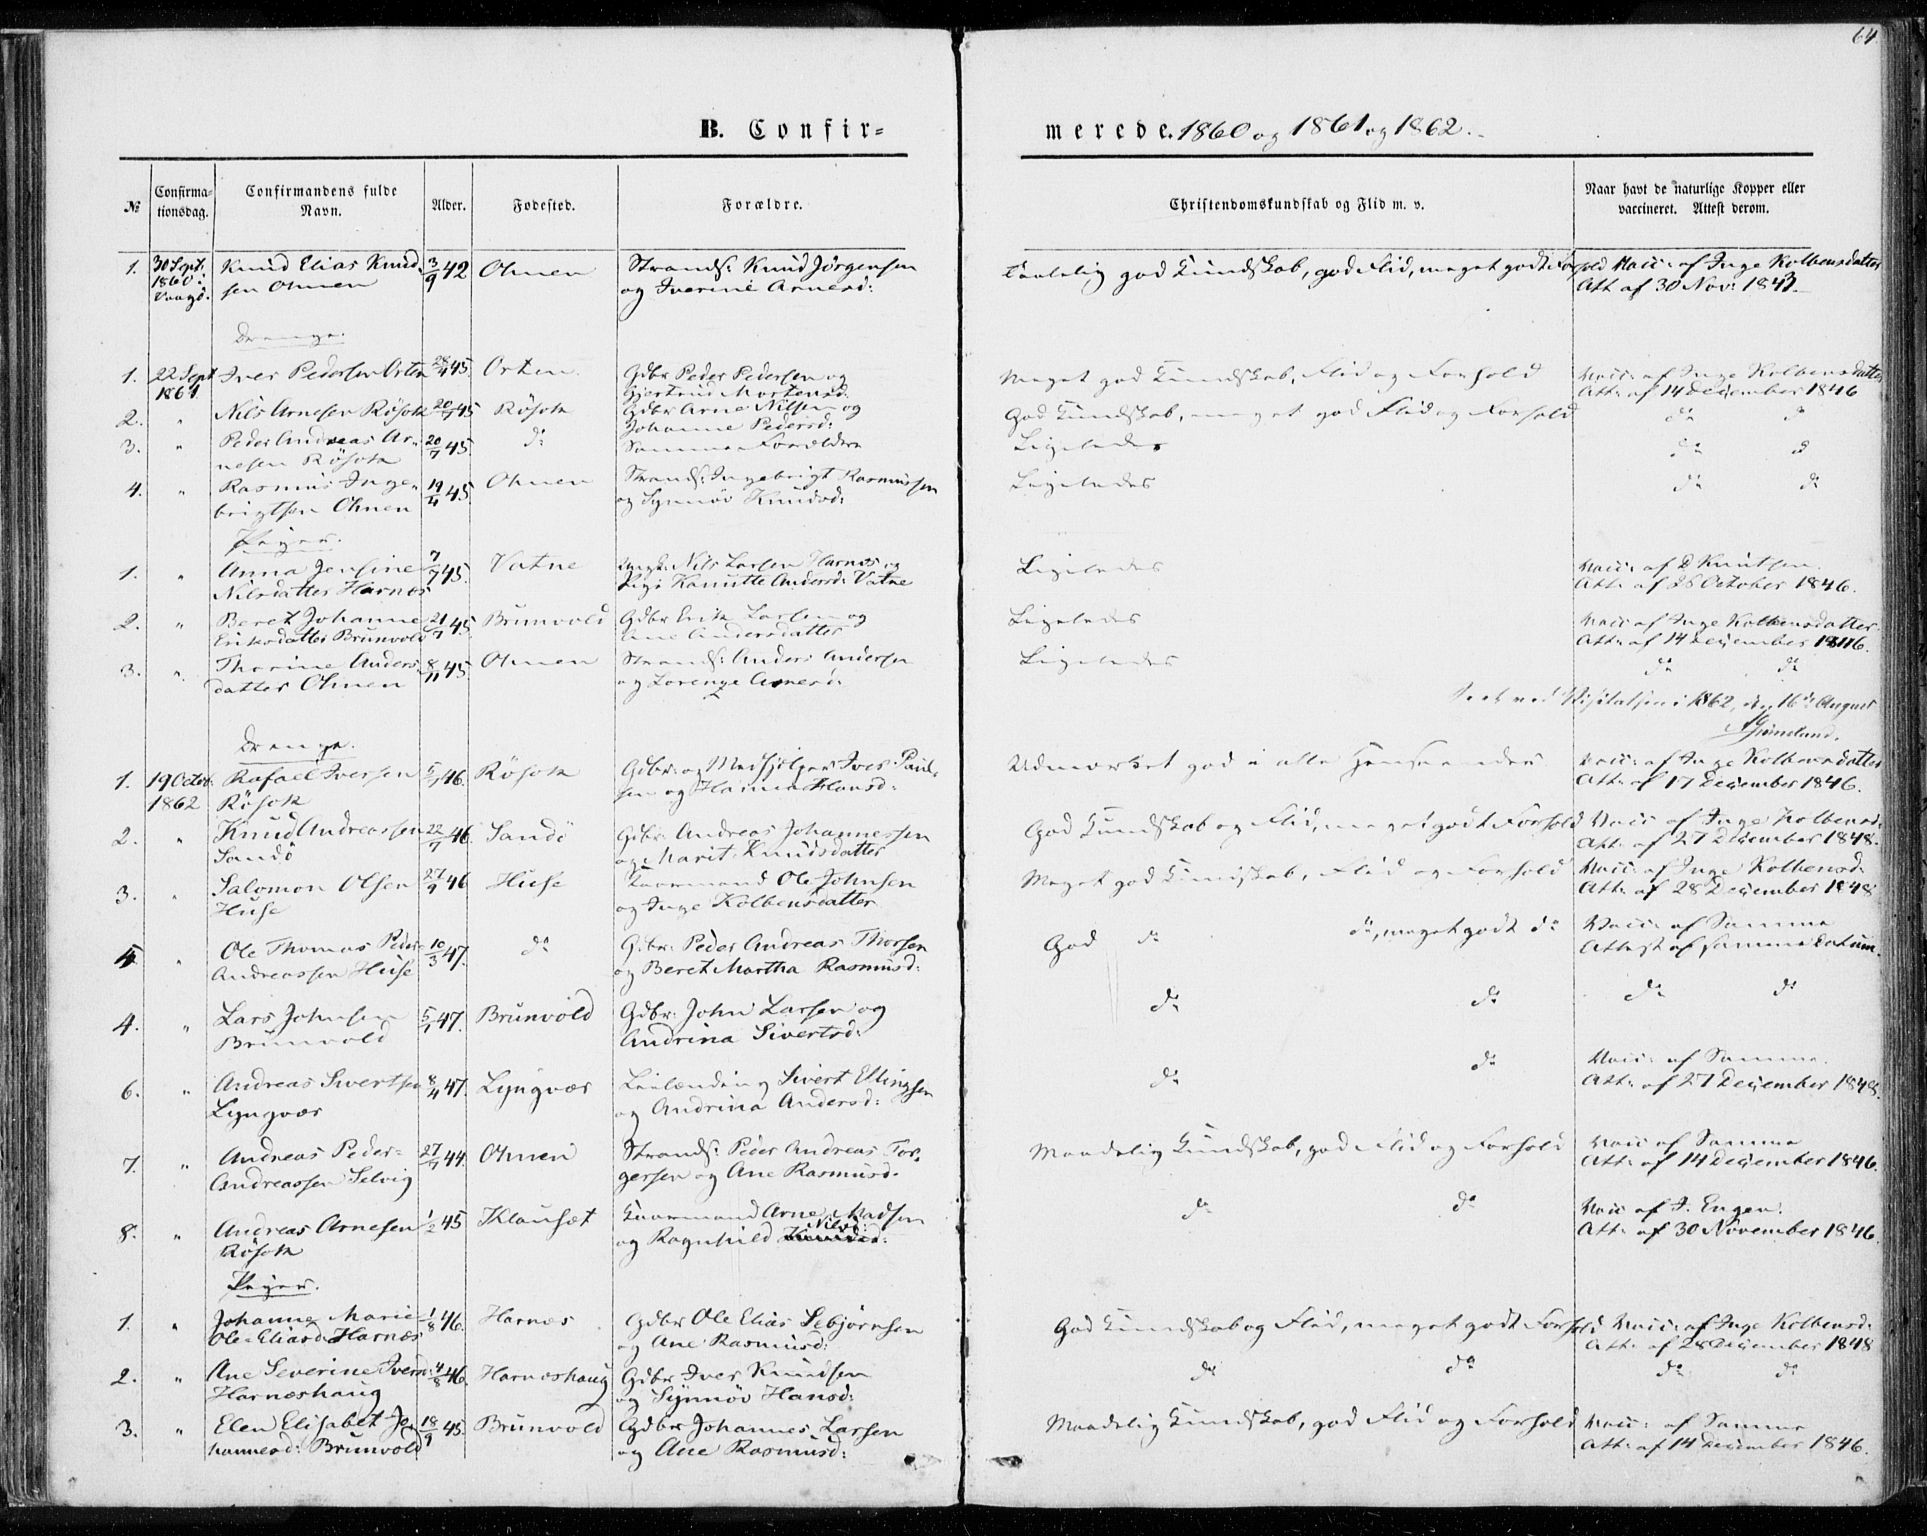 64.
B. Confir=
merede. 1860 og 1861 og 1862.
№
Confirma-
tionsdag.
Confirmandens fulde
Navn.
Alder.
Fødested.
Forældre.
Christendomskundskab og Flid m. v.
Naar havt de naturlige Kopper eller
vaccineret. Attest derom.
1. 30 Sept. Knud Elias Knud 3/9 42 Ohnen Strands: Knud Jørgensen god Kundskab, god Flid, meget godt Forhold Vacc: af Inge Kolbensdatter
1860. sen Ohnen og Iverine Arnesd: Att. af 30 Nov: 1843.
Drenge.
1. 22 Sept Iver Pedersen Orten 28/4 45. Orten. Gdbr Peder Pedersen og Meget god Kundskab, Flid og Forhold Vacc: af Inge Kolbensdatter
1861 Gjertrud Mortensd. Att: af 14 December 1846
2. " Nils Arnesen Rösok 20/7 45 Rösok Gdbr Arne Nilsen og God Kundskab, meget god Flid og Forhold do do
Johanne Pedersd:
3. " Peder Andreas Ar- 20/7 45. do Samme Forældre Ligeledes do do
nesen Rösok
4. " Rasmus Inge- 19/4 45. Ohnen Strands: Ingebrigt Rasmussen Ligeledes do do
brigtsen Ohnen og Synnöv Knudsd:
Piger.
1. " Anna Jensine 7/7 45. Vatne Ungk: Nils Larsen Harnæs og Ligeledes Vacc: af D Knutsen.
Nilsdatter Harnæs Pige Kanutte Andersd: Vatne Att: af 26 October 1846.
2. " Beret Johanne 21/7 45. Brunvold Gdbr Erik Larsen og Ligeledes Vacc: af Inge Kolbensdatter.
Eriksdatter Brunvold Ane Andersdatter Att: af 14 December 1846.
3. " Thorine Anders 8/11 45. Ohnen Strands: Anders Andersen Ligeledes do do
datter Ohnen og Lorenze Arnesd:
Seet ved Visitatsen i 1862, den 16de August
Drenge.
1. 19 Octob: Rafael Iversen 5/1 46. Rösok Gdbr: og Medhjelper Iver Paul- Udmærket god i alle Henseender Vacc: af Inge Kolbensdatter
1862 Rösok sen og Hanna Hansd: Att: af 17 December 1846.
2. " Knud Andreassen 22/7 46. Sandö Gdbr: Andreas Johannessen God Kundskab og Flid, meget godt Forhold Vacc: af Inge Kolbensd:
Sandö og Marit Knudsdatter Att: af 27 December 1848.
3. " Salomon Olsen 27/9 46 Huse Kaarmand Ole Johnsen Meget god Kundskab, Flid og Forhold Vacc: af Inge Kolbensd.
Huse og Inge Kolbensdatter Att: af 28 December 1848.
5 " Ole Thomas Peder- 10/3 47. do Gdbr: Peder Andreas Thorsen God do do, meget godt do Vacc: af Samme
Andreassen Huse og Beret Martha Rasmusd: Attest af samme Datum.
4. " Lars Johnsen 5/1 47. Brunvold Gdbr: John Larsen og do do do do
Brunvold Andrina Sivertsd:
6. " Andreas Sivertsen 8/4 47. Lyngvær Leilænding Sivert Ellingsen do do Vacc: af Samme.
Lyngvær og Andrina Andersd: Att: af 27 December 1848.
7. " Andreas Peder- 27/7 44. Ohnen Strands: Peder Andreas Tor- Maadelig Kundskab, god Flid og Forhold Vacc af Samme
Andreassen Selvig gersen og Ane Rasmusd. Att: af 14 December 1846.
8. " Andreas Arnesen 1/2 45 Klauset Kaarmand Arne Madsen do do Vacc af J. Engen.
Rösok og Ragnhild Nilsd: Att: af 30 November 1846.
Piger.
1. " Johanne Marie 1/8 46. Harnæs Gdbr Ole Elias Sebjørnsen God Kundskab og Flid, meget godt Forhold Vacc: af Inge Kolbensd:
Ole-Eliasd. Harnæs og Ane Rasmusd: Att: af 28 December 1848
2. " Ane Severine Iversd: 4/8 46. Harnæshaug Gdbr Iver Knudsen do do do do
Harnæshaug og Synnöv Hansd:
3. " Elen Elisabet Jo- 18/9 45. Brunvold Gdbr Johannes Larsen Maadelig Kundskab, god Flid og Forhold Vacc: af Samme
hannesd: Brunvold og Ane Rasmusd: Att: af 14 December 1846.